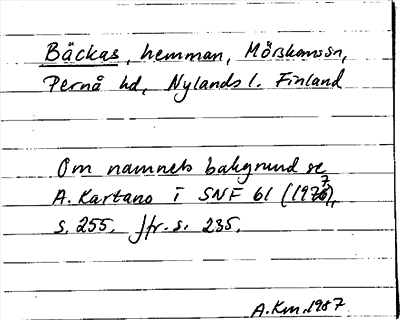 Bäckas, hemman, Mörskomssn,
Pernå hd, Nylands l. Finland
Om namnets bakgrund se
A. Kartano i SNF 61 (1977),
s. 255. Jfr. s. 235.
A.Km. 1987